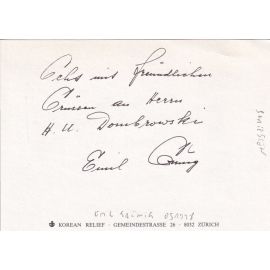 Echt mit freundlichen
Grüssen an Herrn
H. U. Dombrowski
Emil
KOREAN RELIEF - GEMEINDESTRASSE 26 - 8032 ZÜRICH